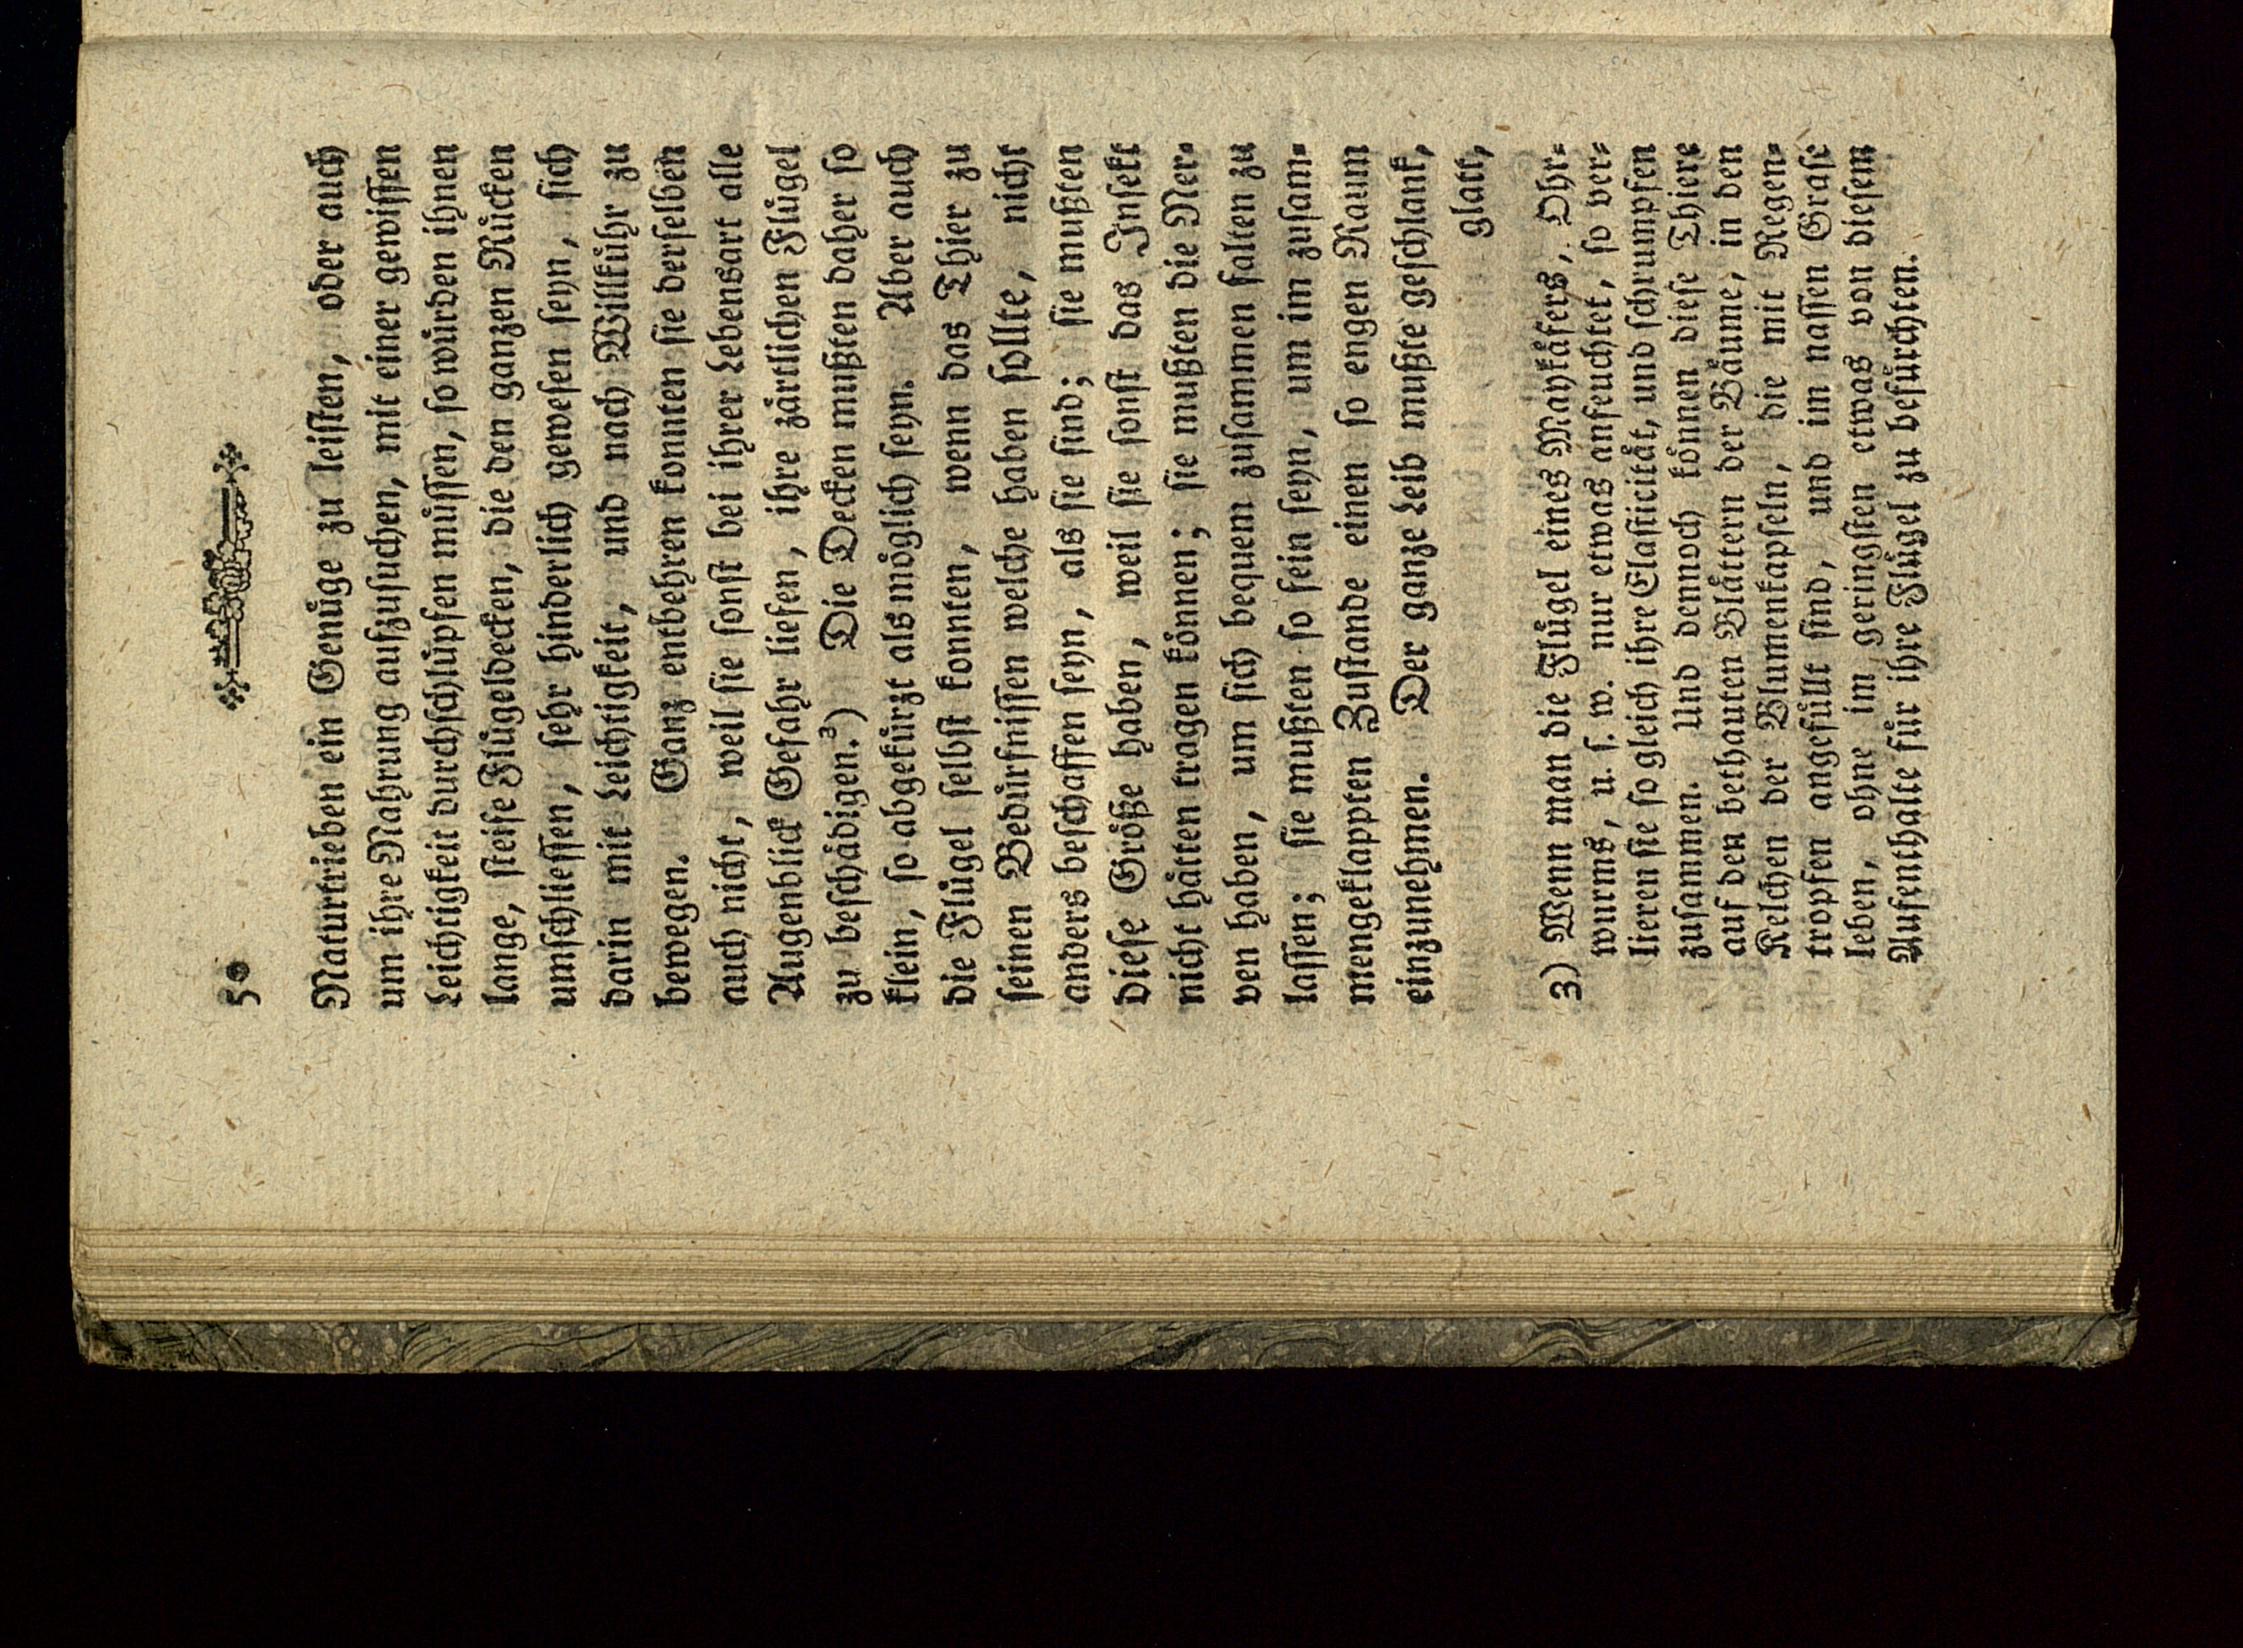 50
Naturtrieben ein Genuͤge zu leiſten, oder auch
um ihre Nahrung aufzuſuchen, mit einer gewiſſen
Leichtigkeit durchſchluͤpfen muͤſſen, ſo wuͤrden ihnen
lange, ſteife Fluͤgeldecken, die den ganzen Ruͤcken
umſchlieſſen, ſehr hinderlich geweſen ſeyn, ſich
darin mit Leichtigkeit, und nach Willkuͤhr zu
bewegen. Ganz entbehren konnten ſie derſelben
auch nicht, weil ſie ſonſt bei ihrer Lebensart alle
Augenblick Gefahr liefen, ihre zaͤrtlichen Fluͤgel
zu beſchaͤdigen.³) Die Decken mußten daher ſo
klein, ſo abgekuͤrzt als moͤglich ſeyn. Aber auch
die Fluͤgel ſelbſt konnten, wenn das Thier zu
ſeinen Beduͤrfniſſen welche haben ſollte, nicht
anders beſchaffen ſeyn, als ſie ſind; ſie mußten
dieſe Groͤße haben, weil ſie ſonſt das Inſekt
nicht haͤtten tragen koͤnnen; ſie mußten die Ner⸗
ven haben, um ſich bequem zuſammen falten zu
laſſen; ſie mußten ſo fein ſeyn, um im zuſam⸗
mengeklappten Zuſtande einen ſo engen Raum
einzunehmen. Der ganze Leib mußte geſchlank,
glatt,
3) Wenn man die Fluͤgel eines Maykaͤfers, Ohr⸗
wurms, u. ſ. w. nur etwas anfeuchtet, ſo ver⸗
lieren ſie ſo gleich ihre Elaſticitaͤt, und ſchrumpfen
zuſammen. Und dennoch koͤnnen dieſe Thiere
auf den bethauten Blaͤttern der Baͤume, in den
Kelchen der Blumenkapſeln, die mit Regen⸗
tropfen angefuͤllt ſind, und im naſſen Graſe
leben, ohne im geringſten etwas von dieſem
Aufenthalte fuͤr ihre Fluͤgel zu befuͤrchten.